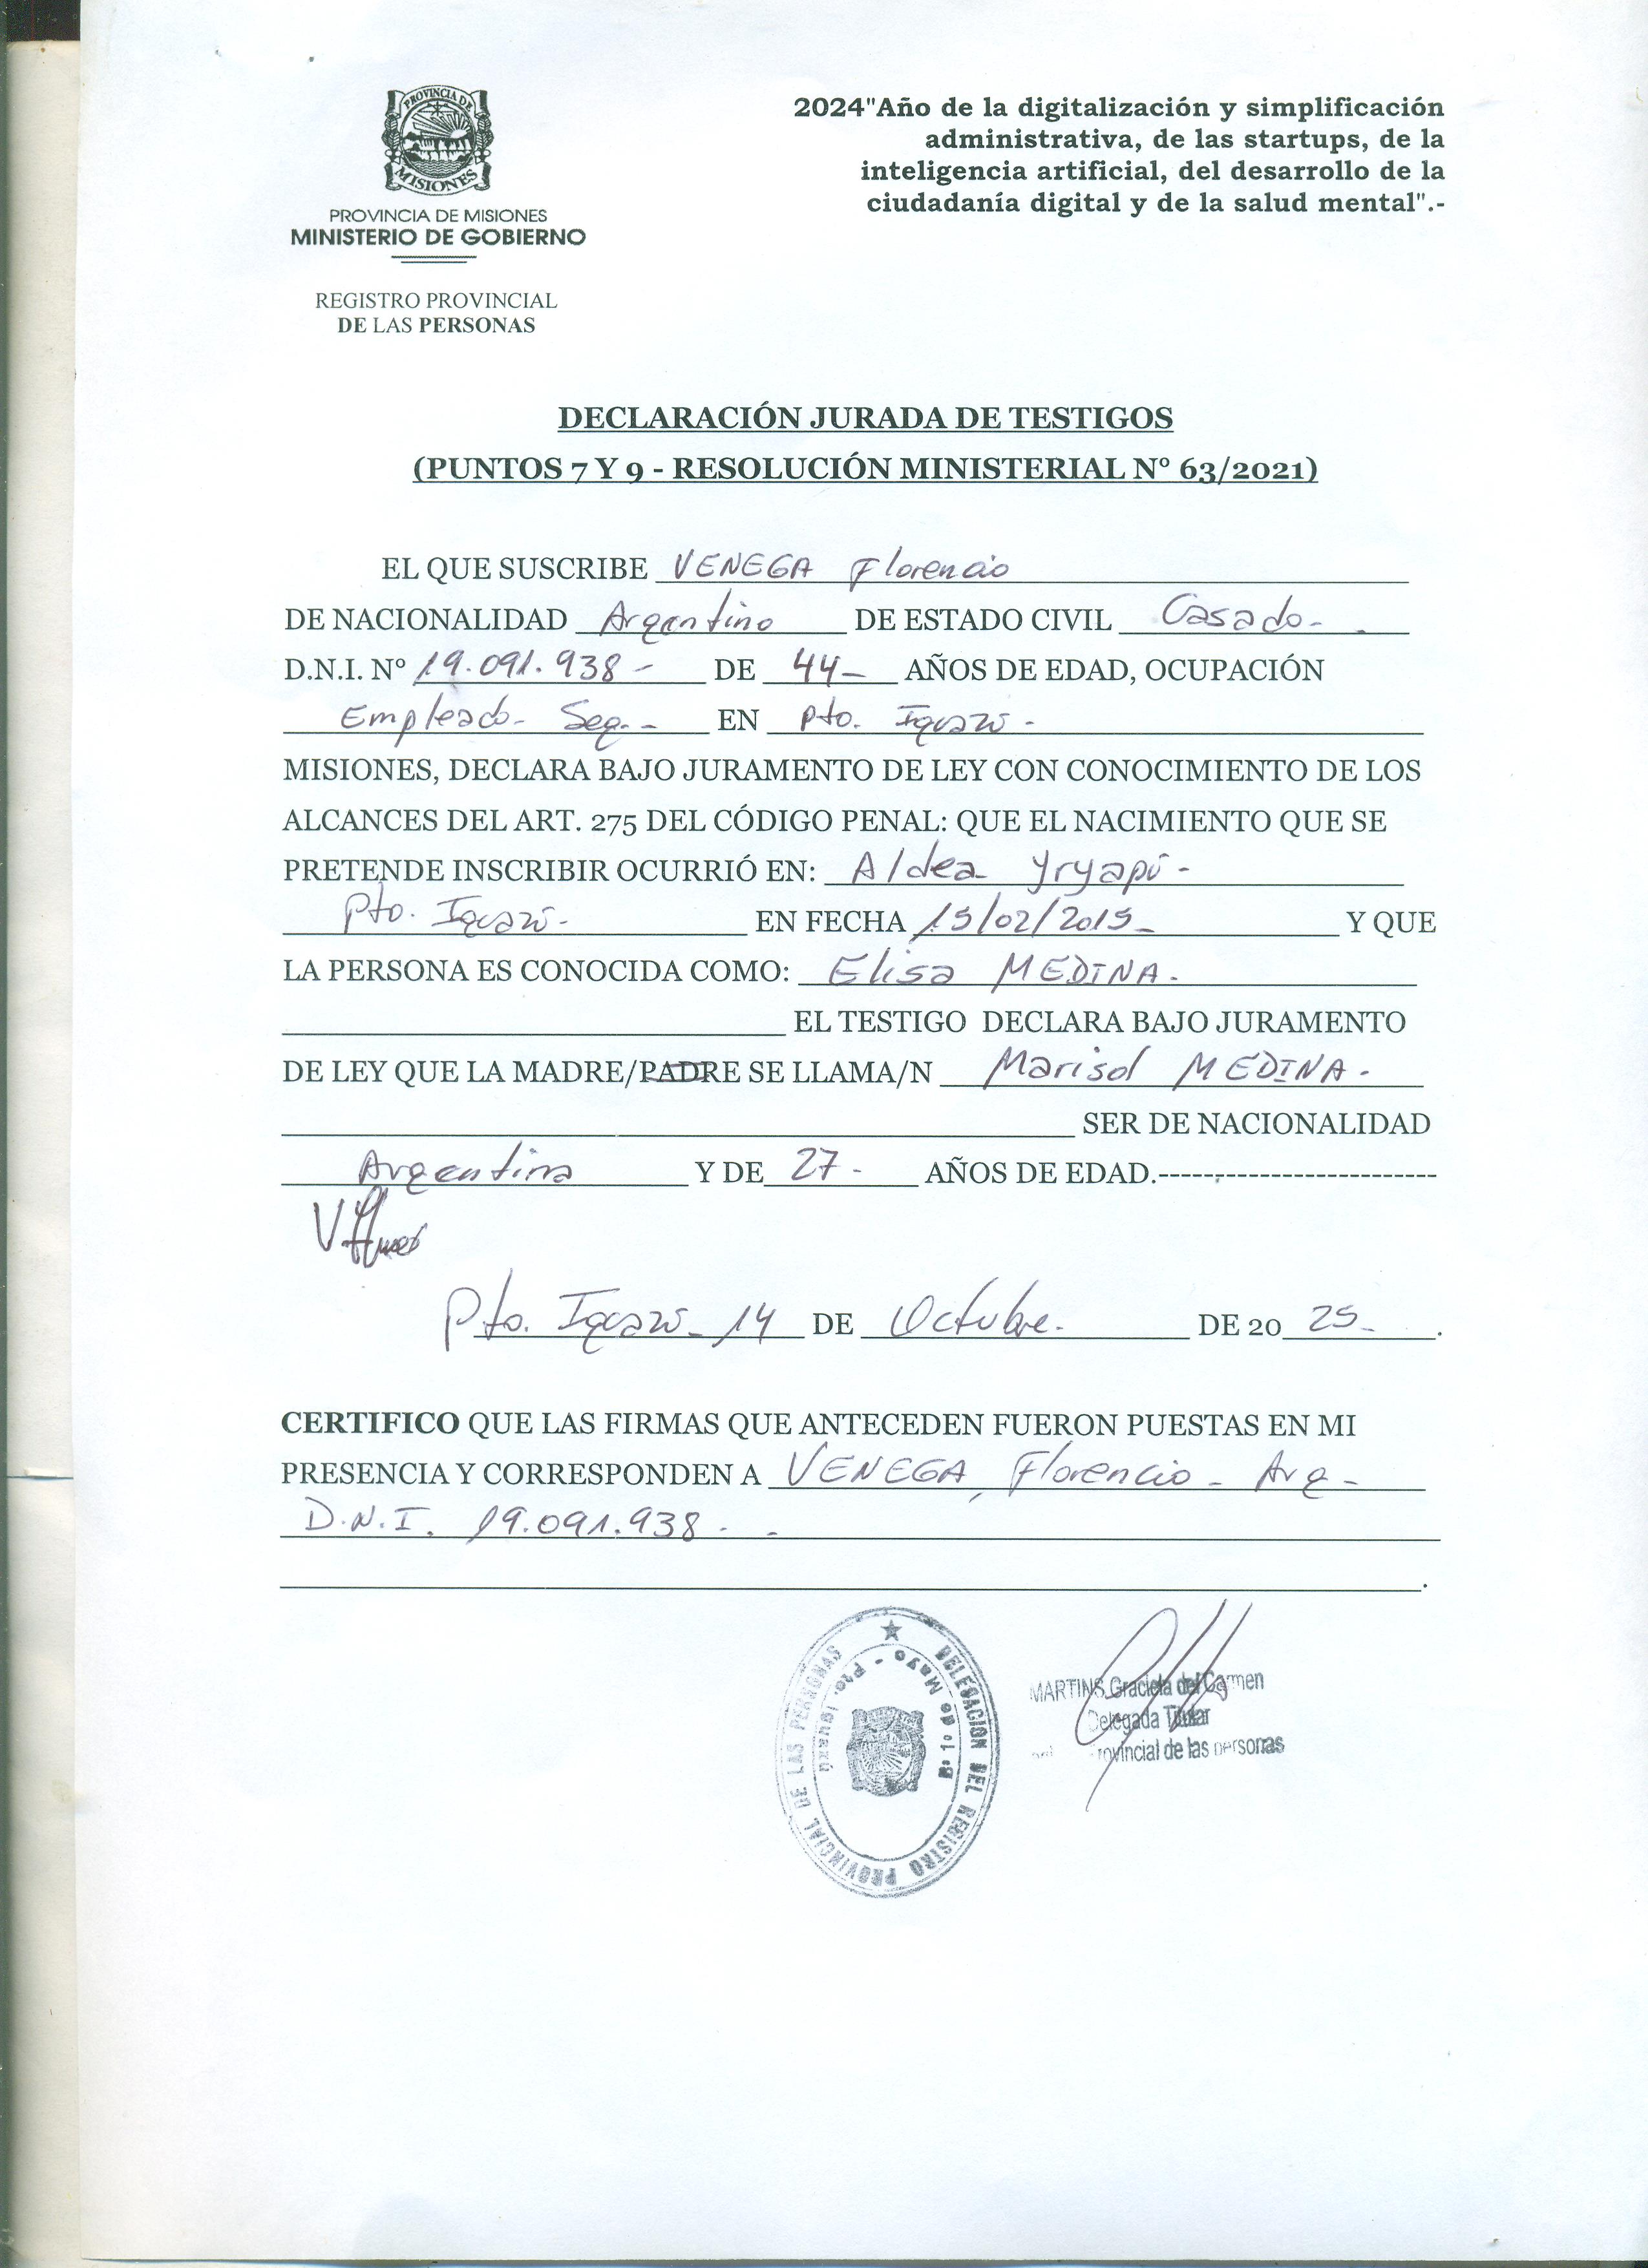 PROVINCIA DE
MISIONES
PROVINCIA DE MISIONES
MINISTERIO DE GOBIERNO
REGISTRO PROVINCIAL
DE LAS PERSONAS
2024"Año de la digitalización y simplificación
administrativa, de las startups, de la
inteligencia artificial, del desarrollo de la
ciudadanía digital y de la salud mental".-
DECLARACIÓN JURADA DE TESTIGOS
(PUNTOS 7 Y 9 - RESOLUCIÓN MINISTERIAL Nº 63/2021)
EL QUE SUSCRIBE VENEGA Florencio
DE NACIONALIDAD Argentino DE ESTADO CIVIL Casado-
D.N.I. Nº 19.091.938- DE 44- AÑOS DE EDAD, OCUPACIÓN
Empleado- Seg.- EN Pto. Iguazú-
MISIONES, DECLARA BAJO JURAMENTO DE LEY CON CONOCIMIENTO DE LOS
ALCANCES DEL ART. 275 DEL CÓDIGO PENAL: QUE EL NACIMIENTO QUE SE
PRETENDE INSCRIBIR OCURRIÓ EN: Aldea Yryapú-
Pto. Iguazú- EN FECHA 15/02/2015- Y QUE
LA PERSONA ES CONOCIDA COMO: Elisa MEDINA-
EL TESTIGO DECLARA BAJO JURAMENTO
DE LEY QUE LA MADRE/PADRE SE LLAMA/N Marisol MEDINA-
SER DE NACIONALIDAD
Argentina Y DE 27- AÑOS DE EDAD.------------------------
Pto. Iguazú- 14 DE Octubre- DE 20 25-.
CERTIFICO QUE LAS FIRMAS QUE ANTECEDEN FUERON PUESTAS EN MI
PRESENCIA Y CORRESPONDEN A VENEGA, Florencio- Arg-
D.N.I. 19.091.938- -
DELEGACION DEL REGISTRO PROVINCIAL DE LAS PERSONAS
Bº 1º de Mayo - Pto. Iguazú
MARTINS Graciela del Carmen
Delegada Titular
Provincial de las personas